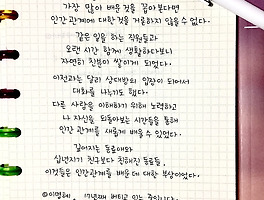 가장 많이 배운것을 꼽아본다면
인간관계에 대한것을 거론하지 않을수 없다.
같은 일을 하는 직원들과
오랜 시간 함께 생활하다보니
자연히 친분이 쌓이게 되었다.
이전과는 달리 상대방의 입장이 되어서
대화를 나누기도 했다.
다른 사람을 이해하기 위해 노력하고
나 자신을 되돌아보는 시간들을 통해
인간 관계를 새롭게 배울 수 있었다.
깊어지는 동료애와
십년지기 친구보다 친해진 동료들,
이것들은 인간관계를 배운 데 대한 부상이었다.